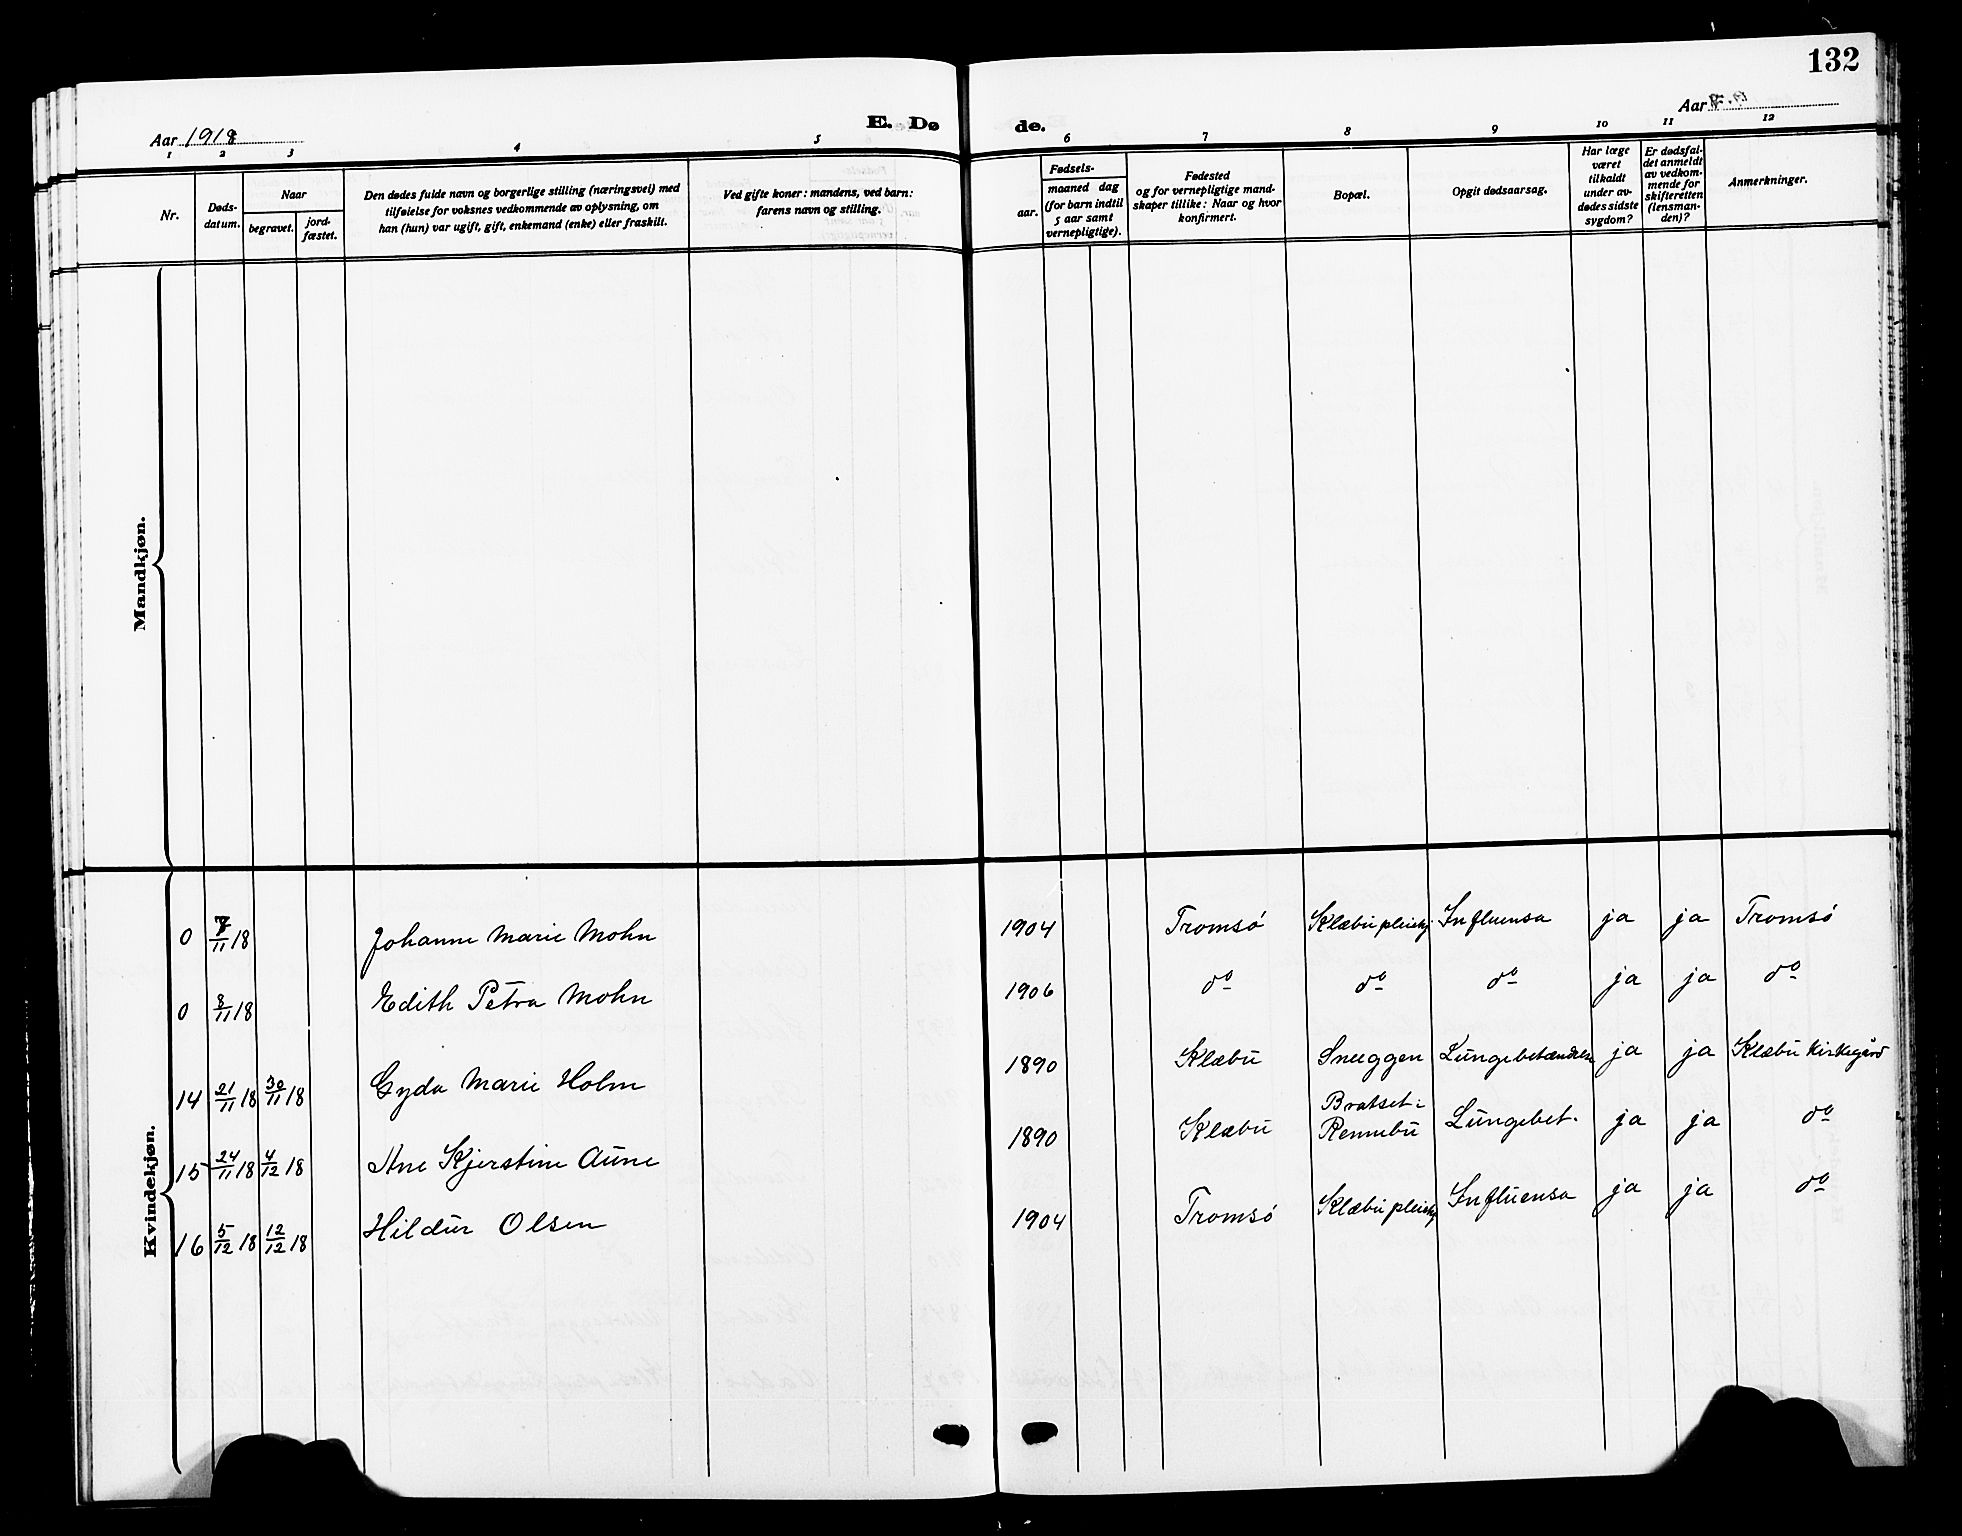 132
Aar 1918
E. Dø de.
Aar
1 2 3 4 5 6 7 8 9 10 11 12
Nr.
Døds-
datum.
Naar
begravet.
jord-
fæstet.
Den dødes fulde navn og borgerlige stilling (næringsvei) med
tilføielse for voksnes vedkommende av oplysning, om
han (hun) var ugift, gift, enkemand (enke) eller fraskilt.
Ved gifte koner: mandens, ved barn:
farens navn og stilling.
Fødsels-
aar.
maaned dag
(for barn indtil
5 aar samt
vernepligtige).
Fødested
og for vernepligtige mand-
skaper tillike: Naar og hvor
konfirmert.
Bopæl.
Opgit dødsaarsag.
Har læge
været
tilkaldt
under av-
dødes sidste
sygdom?
Er dødsfal-
det anmeldt
av vedkom-
mende for
skifteretten
(lensman-
den)?
Anmerkninger.
Mandkjøn.
Kvindekjøn.
0 7/11 18 Johanne Marie Mohn 1904 Tromsø Klæbu pleiehj Influensa ja ja Tromsø
0 8/11 18 Edith Petra Mohn 1906 do do do ja ja do
14 21/11 18 30/11 18 Gyda Marie Holm 1890 Klæbu Sneeggen Lungebetændelse ja ja Klæbu kirkegård
15 24/11 18 4/12 18 Ane Kjerstine Aune 1890 Klæbu Bratset i
Rennebu Lungebet. ja ja do
16 5/12 18 12/12 18 Hildur Olsen 1904 Tromsø Klæbu pleiehj Influensa ja ja do